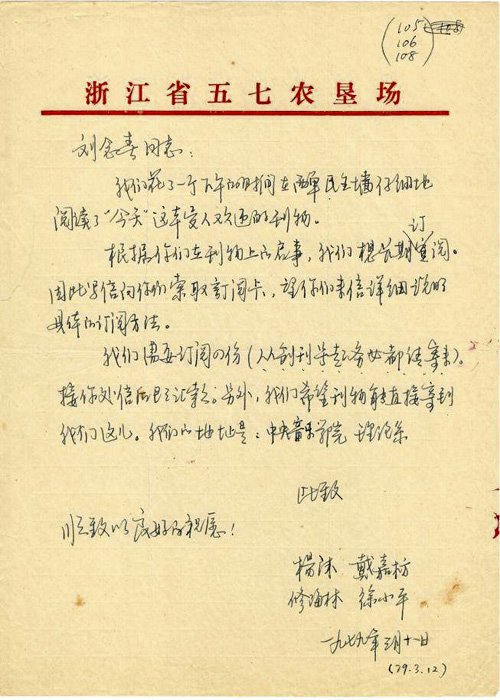 (105
106
108)
浙江省五七农垦场
刘念春同志：
我们花了一个下午的时间在西单民主墙仔细地
阅读了“今天”这本受人欢迎的刊物。
订
根据你们在刊物上的启事，我们想长期阅。
因此写信向你们索取订阅卡，望你们来信详细说明
具体的订阅方法。
我们需要订阅四份（从创刊号起务必都请寄来）。
接你处信后即汇款。另外，我们希望刊物能直接寄到
我们这儿。我们的地址是：中央音乐学院 理论系
此致
顺致以良好的祝愿！
杨沐 戴嘉枋
修海林 徐小平
一九七九年三月十一日
(79.3.12)